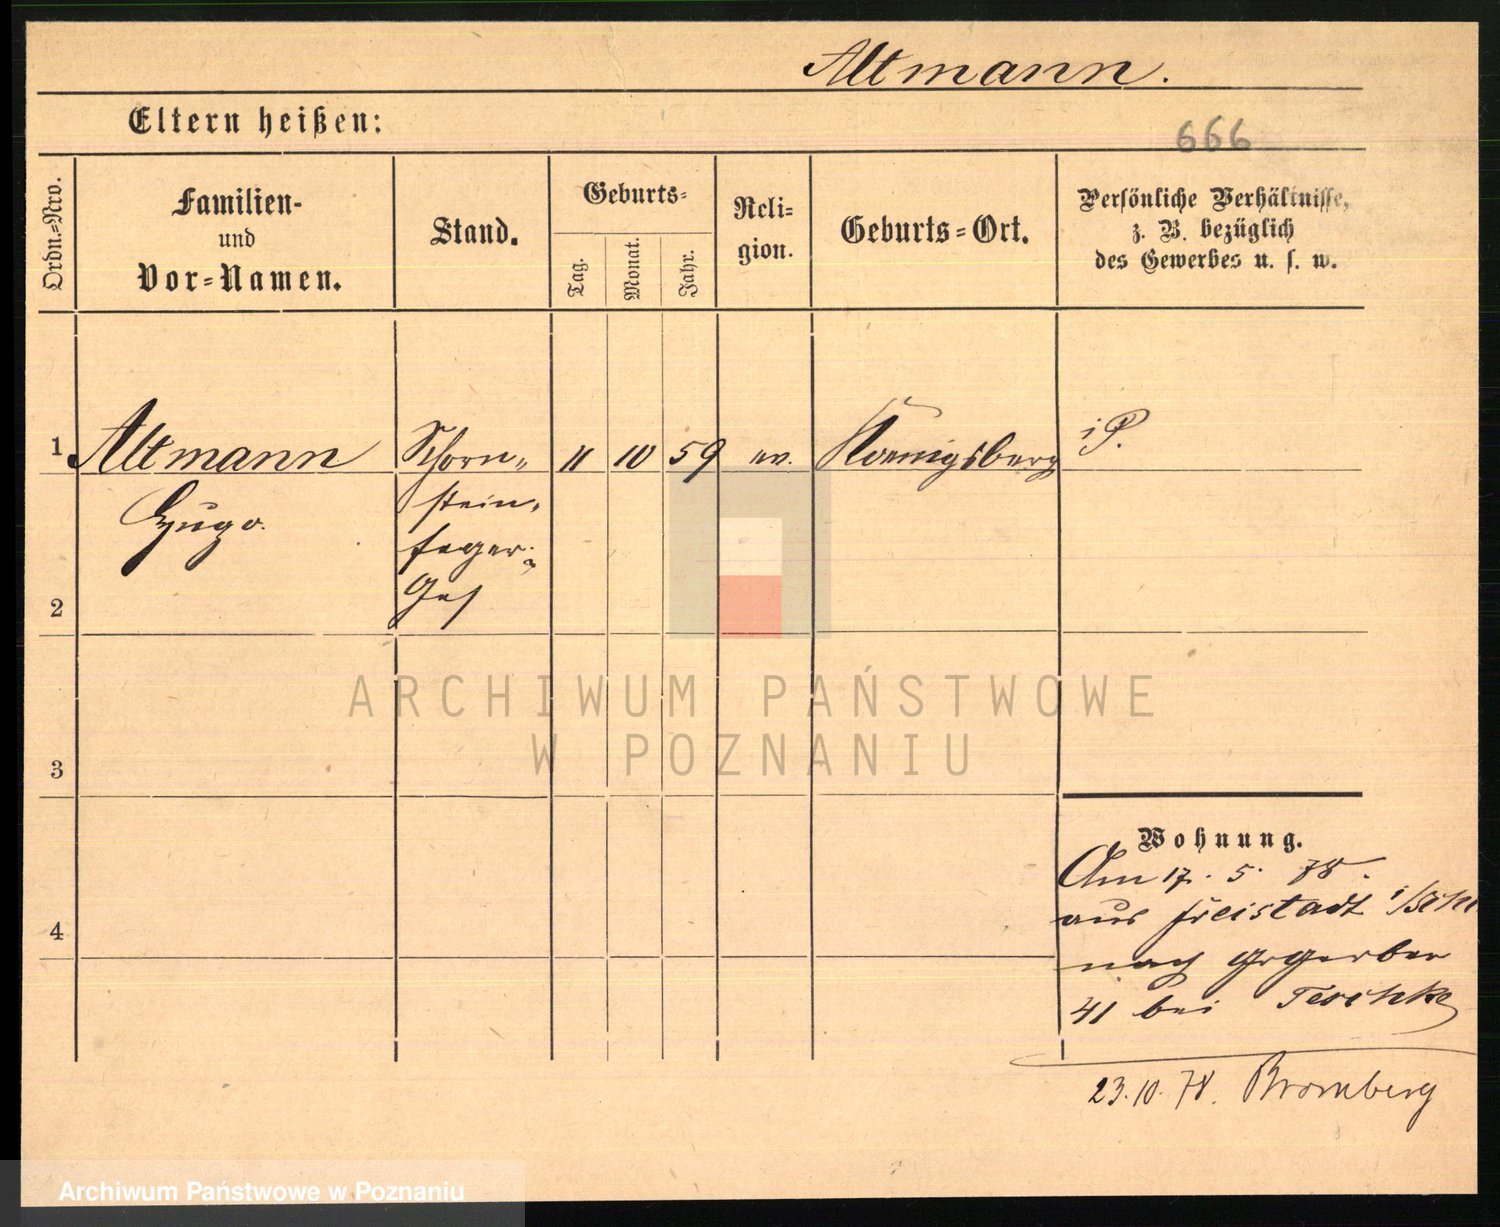 Altmann.
Eltern heißen:
666
Ordn.=Nro.
Familien-
und
Vor=Namen.
Stand.
Geburts=
Tag.
Monat.
Jahr.
Reli=
gion.
Geburts=Ort.
Persönliche Verhältnisse,
z. B. bezüglich
des Gewerbes u. s. w.
1 Altmann Schorn„ 11 10 59 ev. Koenigsberg i P.
Hugo. stein„
feger„
Ges
2
ARCHIWUM PAŃSTWOWE
W POZNANIU
3
Wohnung.
Am 17. 5. 78.
aus Freistadt i/Schl
nach Grgerber
4
41 bei Teschke
23.10.78. Bromberg
Archiwum Państwowe w Poznaniu